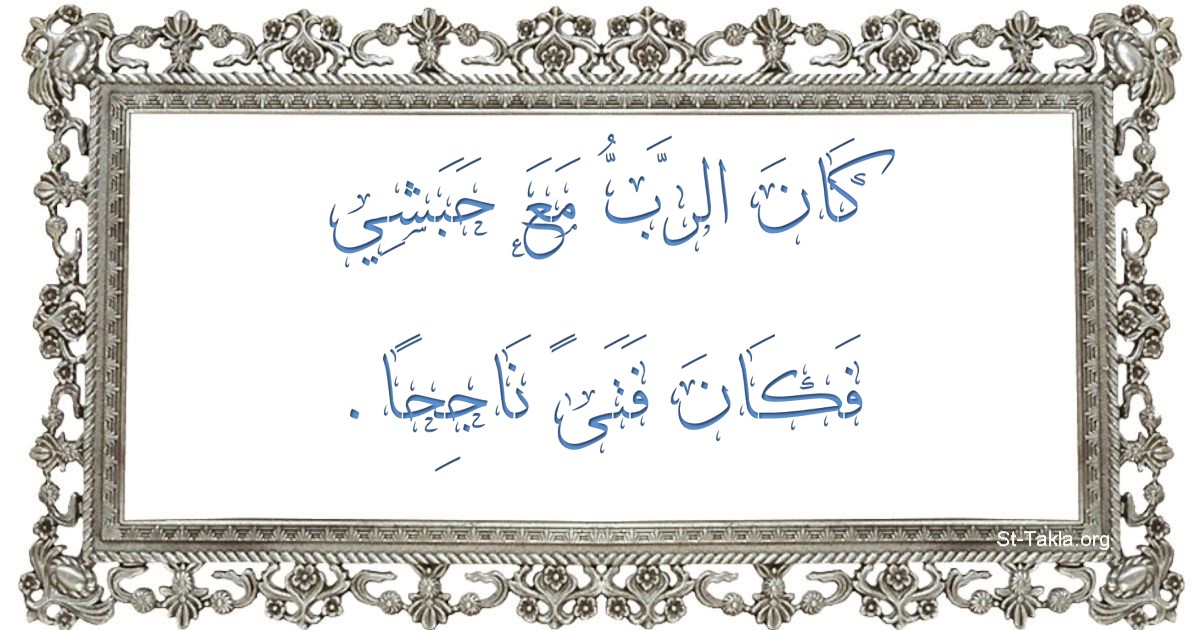 كَانَ الرَّبُّ مَعَ حَبَشِي
فَكَانَ فَتَىً نَاجِحًا .
St-Takla.org